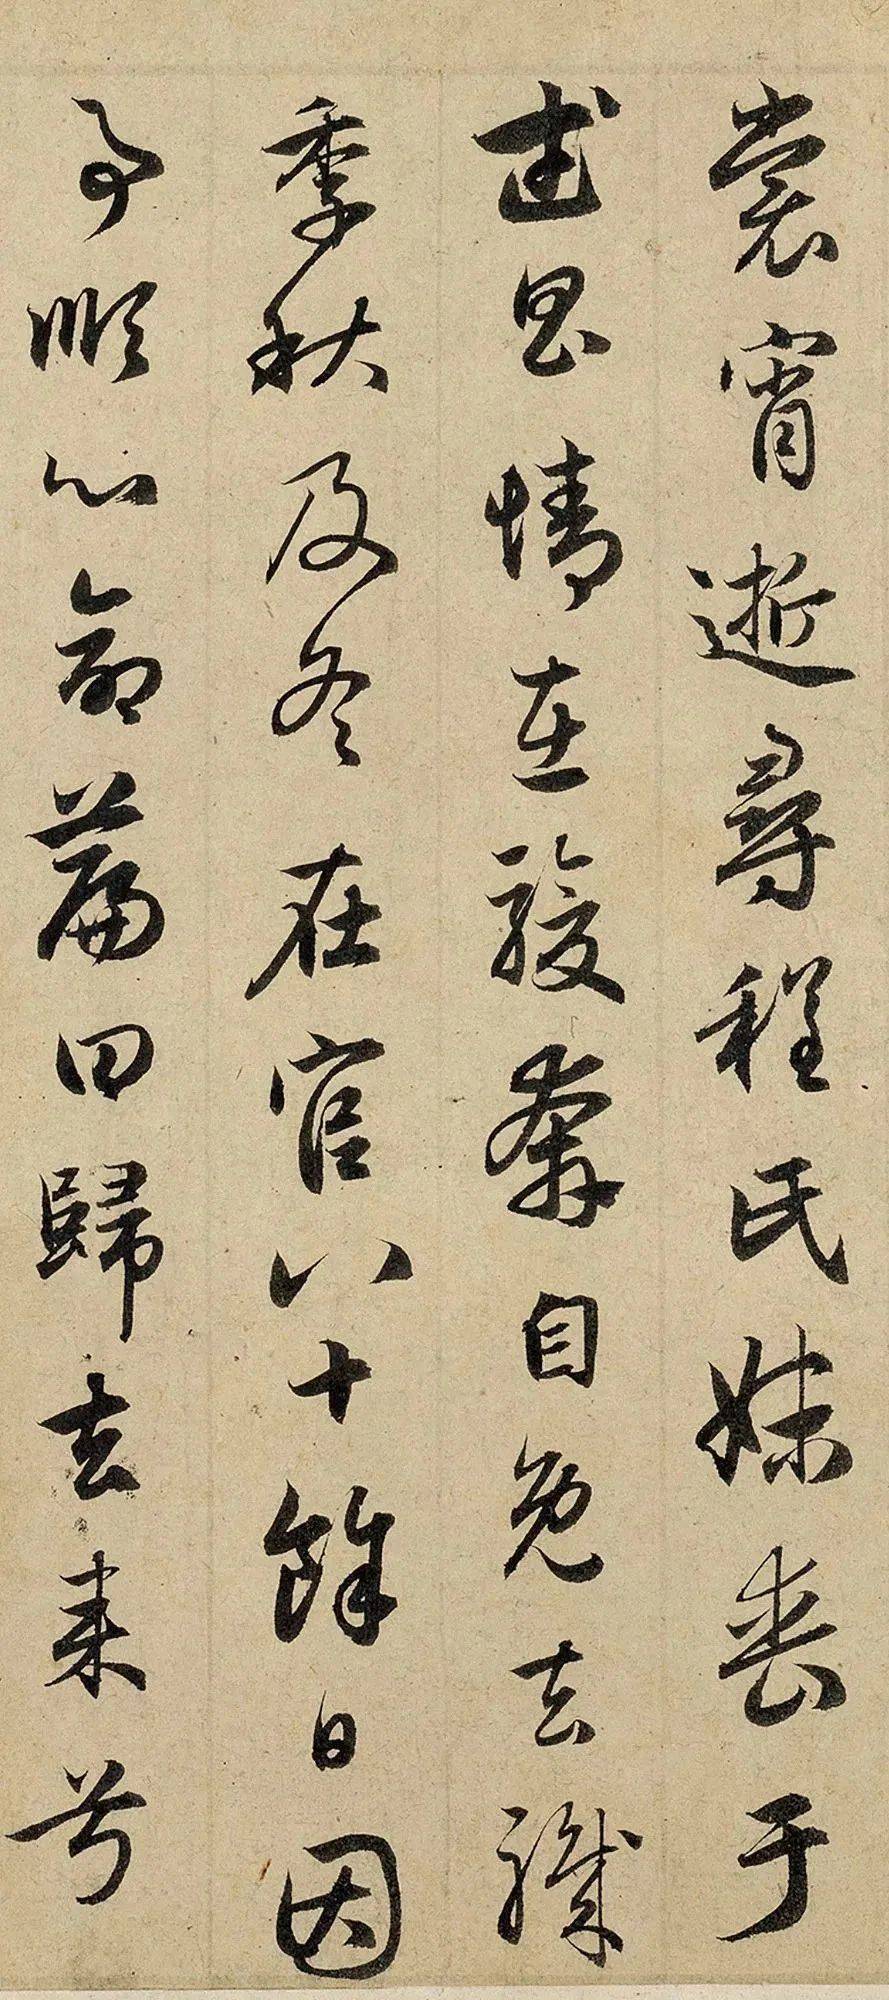 裳宵逝尋程氏妹喪于
武昌情在駿奔自免去職
季秋及冬在官八十餘日因
事順心命篇曰歸去來兮